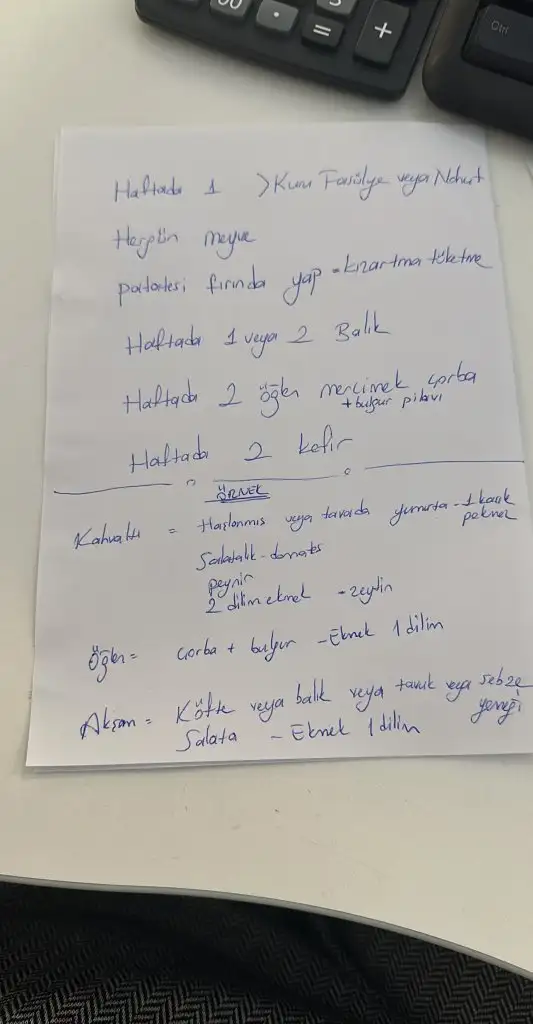 Haftada 1 > Kuru Fasülye veya Nohut
Hergün meyve
patatesi fırında yap - kızartma tüketme
Haftada 1 veya 2 Balık
Haftada 2 öğlen mercimek çorba
+ bulgur pilavı
Haftada 2 kefir
ÖRNEK
Kahvaltı = Haşlanmış veya tavada yumurta - 1 kaşık
pekmez
Salatalık - domates
peynir
2 dilim ekmek - zeytin
Öğlen = Çorba + bulgur - Ekmek 1 dilim
Akşam = Köfte veya balık veya tavuk veya sebze
yemeği
Salata - Ekmek 1 dilim
Ctrl
=
+